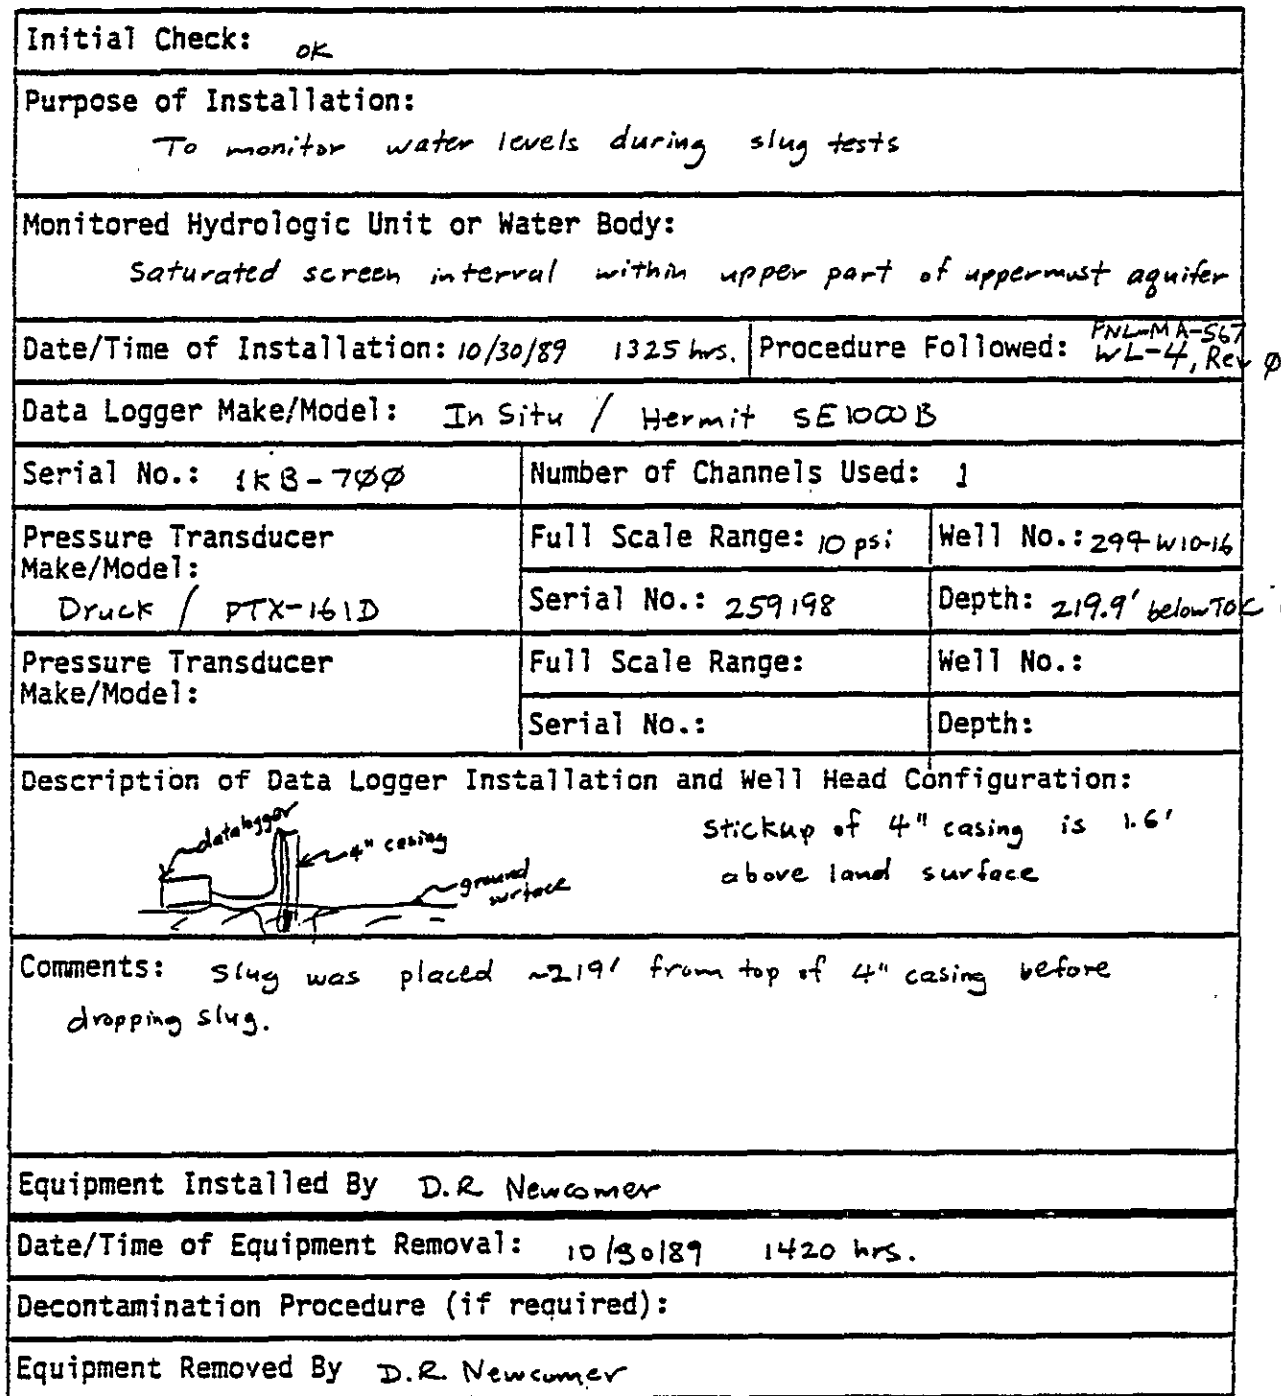 Initial Check: OK
Purpose of Installation:
To monitor water levels during slug tests
Monitored Hydrologic Unit or Water Body:
Saturated screen interval within upper part of uppermost aquifer
Date/Time of Installation: 10/30/89 1325 hrs. Procedure Followed: PNL-MA-567
WL-4, Rev Ø
Data Logger Make/Model: In Situ / Hermit SE1000B
Serial No.: 1KB-7ØØ Number of Channels Used: 1
Pressure Transducer
Make/Model:
Druck / PTX-161D
Full Scale Range: 10 psi Well No.: 299-W10-16
Serial No.: 259198 Depth: 219.9' below TOC
Pressure Transducer
Make/Model:
Full Scale Range: Well No.:
Serial No.: Depth:
Description of Data Logger Installation and Well Head Configuration:
datalogger
4" casing
ground
surface
Stickup of 4" casing is 1.6'
above land surface
Comments: Slug was placed ~219' from top of 4" casing before
dropping slug.
Equipment Installed By D.R Newcomer
Date/Time of Equipment Removal: 10/30/89 1420 hrs.
Decontamination Procedure (if required):
Equipment Removed By D.R. Newcomer